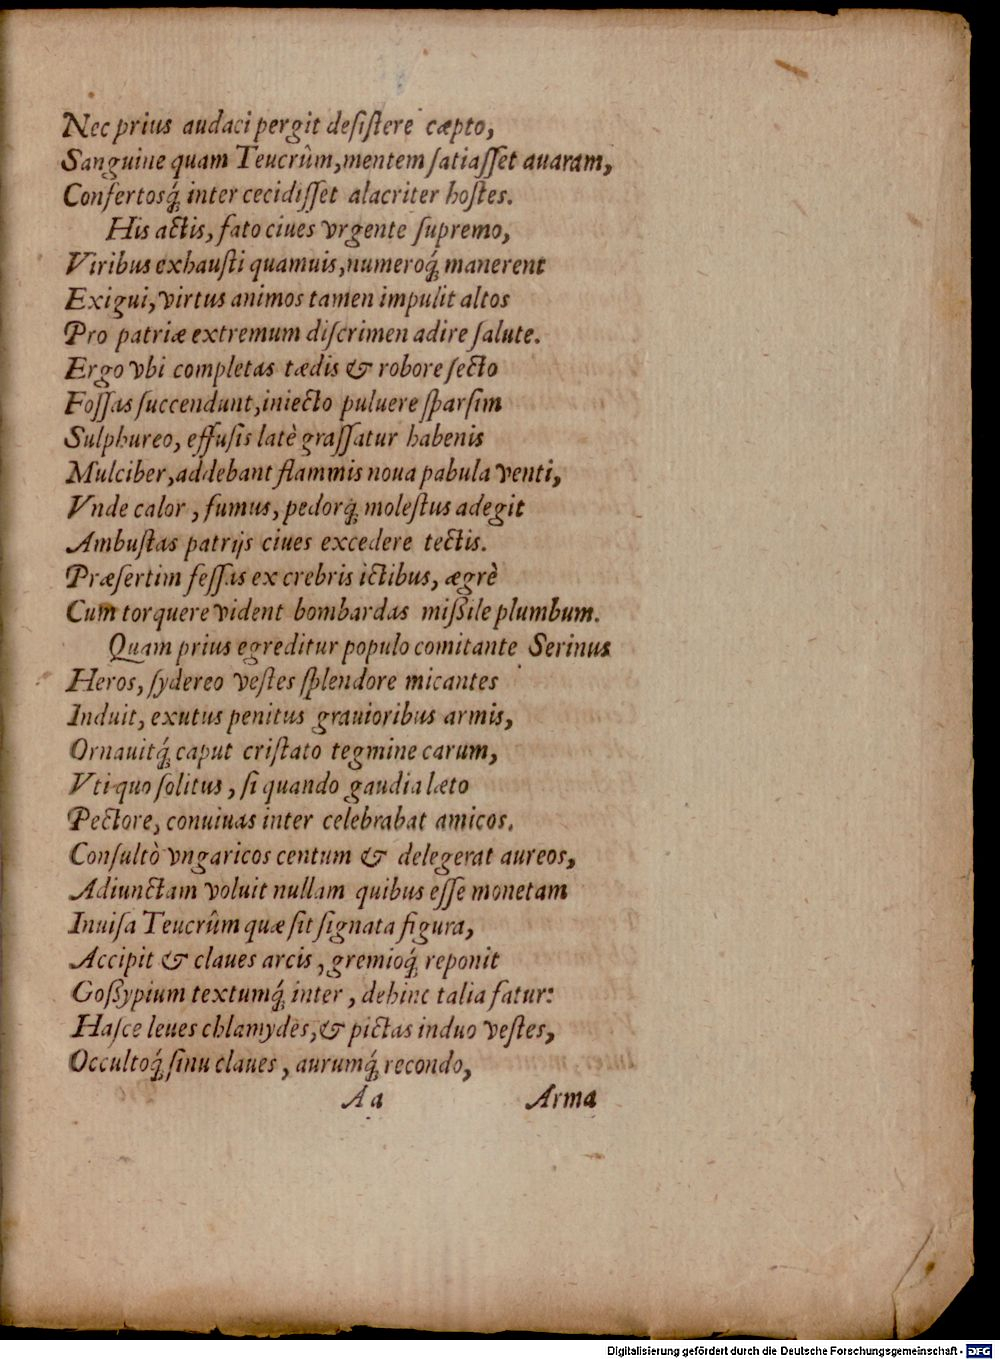 Nec prius audaci pergit desiſtere cæpto,
Sanguine quam Teucrûm, mentem ſatiaſſet auaram,
Confertosq́; inter cecidiſſet alacriter hoſtes.
His actis, fato ciues vrgente ſupremo,
Viribus exhauſti quamuis, numeroq́; manerent
Exigui, virtus animos tamen impulit altos
Pro patriæ extremum diſcrimen adire ſalute.
Ergo vbi completas tædis & robore ſecto
Foſſas ſuccendunt, iniecto puluere ſparſim
Sulphureo, effuſis latè graſſatur habenis
Mulciber, addebant flammis noua pabula venti,
Vnde calor, fumus, pedorq́; moleſtus adegit
Ambuſtas patrijs ciues excedere tectis.
Præſertim feſſas ex crebris ictibus, ægrè
Cum torquere vident bombardas miſsile plumbum.
Quam prius egreditur populo comitante Serinus
Heros, ſydereo veſtes ſplendore micantes
Induit, exutus penitus grauioribus armis,
Ornauitq́; caput criſtato tegmine carum,
Vti quo ſolitus, ſi quando gaudia læto
Pectore, conuiuas inter celebrabat amicos.
Conſultò vngaricos centum & delegerat aureos,
Adiunctam voluit nullam quibus eſſe monetam
Inuiſa Teucrûm quæ ſit ſignata figura,
Accipit & claues arcis, gremioq́; reponit
Goſsypium textumq́; inter, dehinc talia fatur:
Haſce leues chlamydes, & pictas induo veſtes,
Occultoq́; ſinu claues, aurumq́; recondo,
Aa Arma
Digitalisierung gefördert durch die Deutsche Forschungsgemeinschaft - DFG